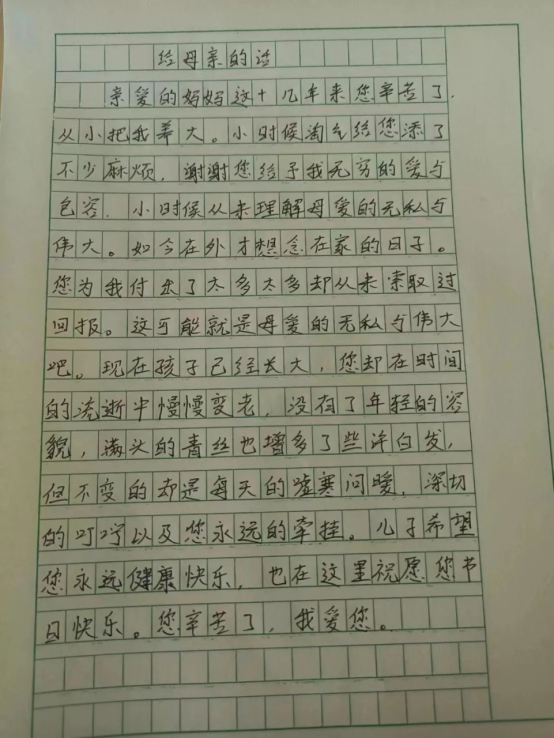 给母亲的话
亲爱的妈妈这十几年来您辛苦了.
从小把我养大。小时候淘气给您添了
不少麻烦,谢谢您给予我无穷的爱与
包容.小时候从未理解母爱的无私与
伟大。如今在外才想念在家的日子。
您为我付出了太多太多却从未索取过
回报。这可能就是母爱的无私与伟大
吧。现在孩子已经长大,您却在时间
的流逝中慢慢变老,没有了年轻的容
貌,满头的青丝也增多了些许白发,
但不变的却是每天的嘘寒问暖,深切
的叮咛以及您永远的牵挂。儿子希望
您永远健康快乐,也在这里祝愿您节
日快乐。您辛苦了,我爱您。